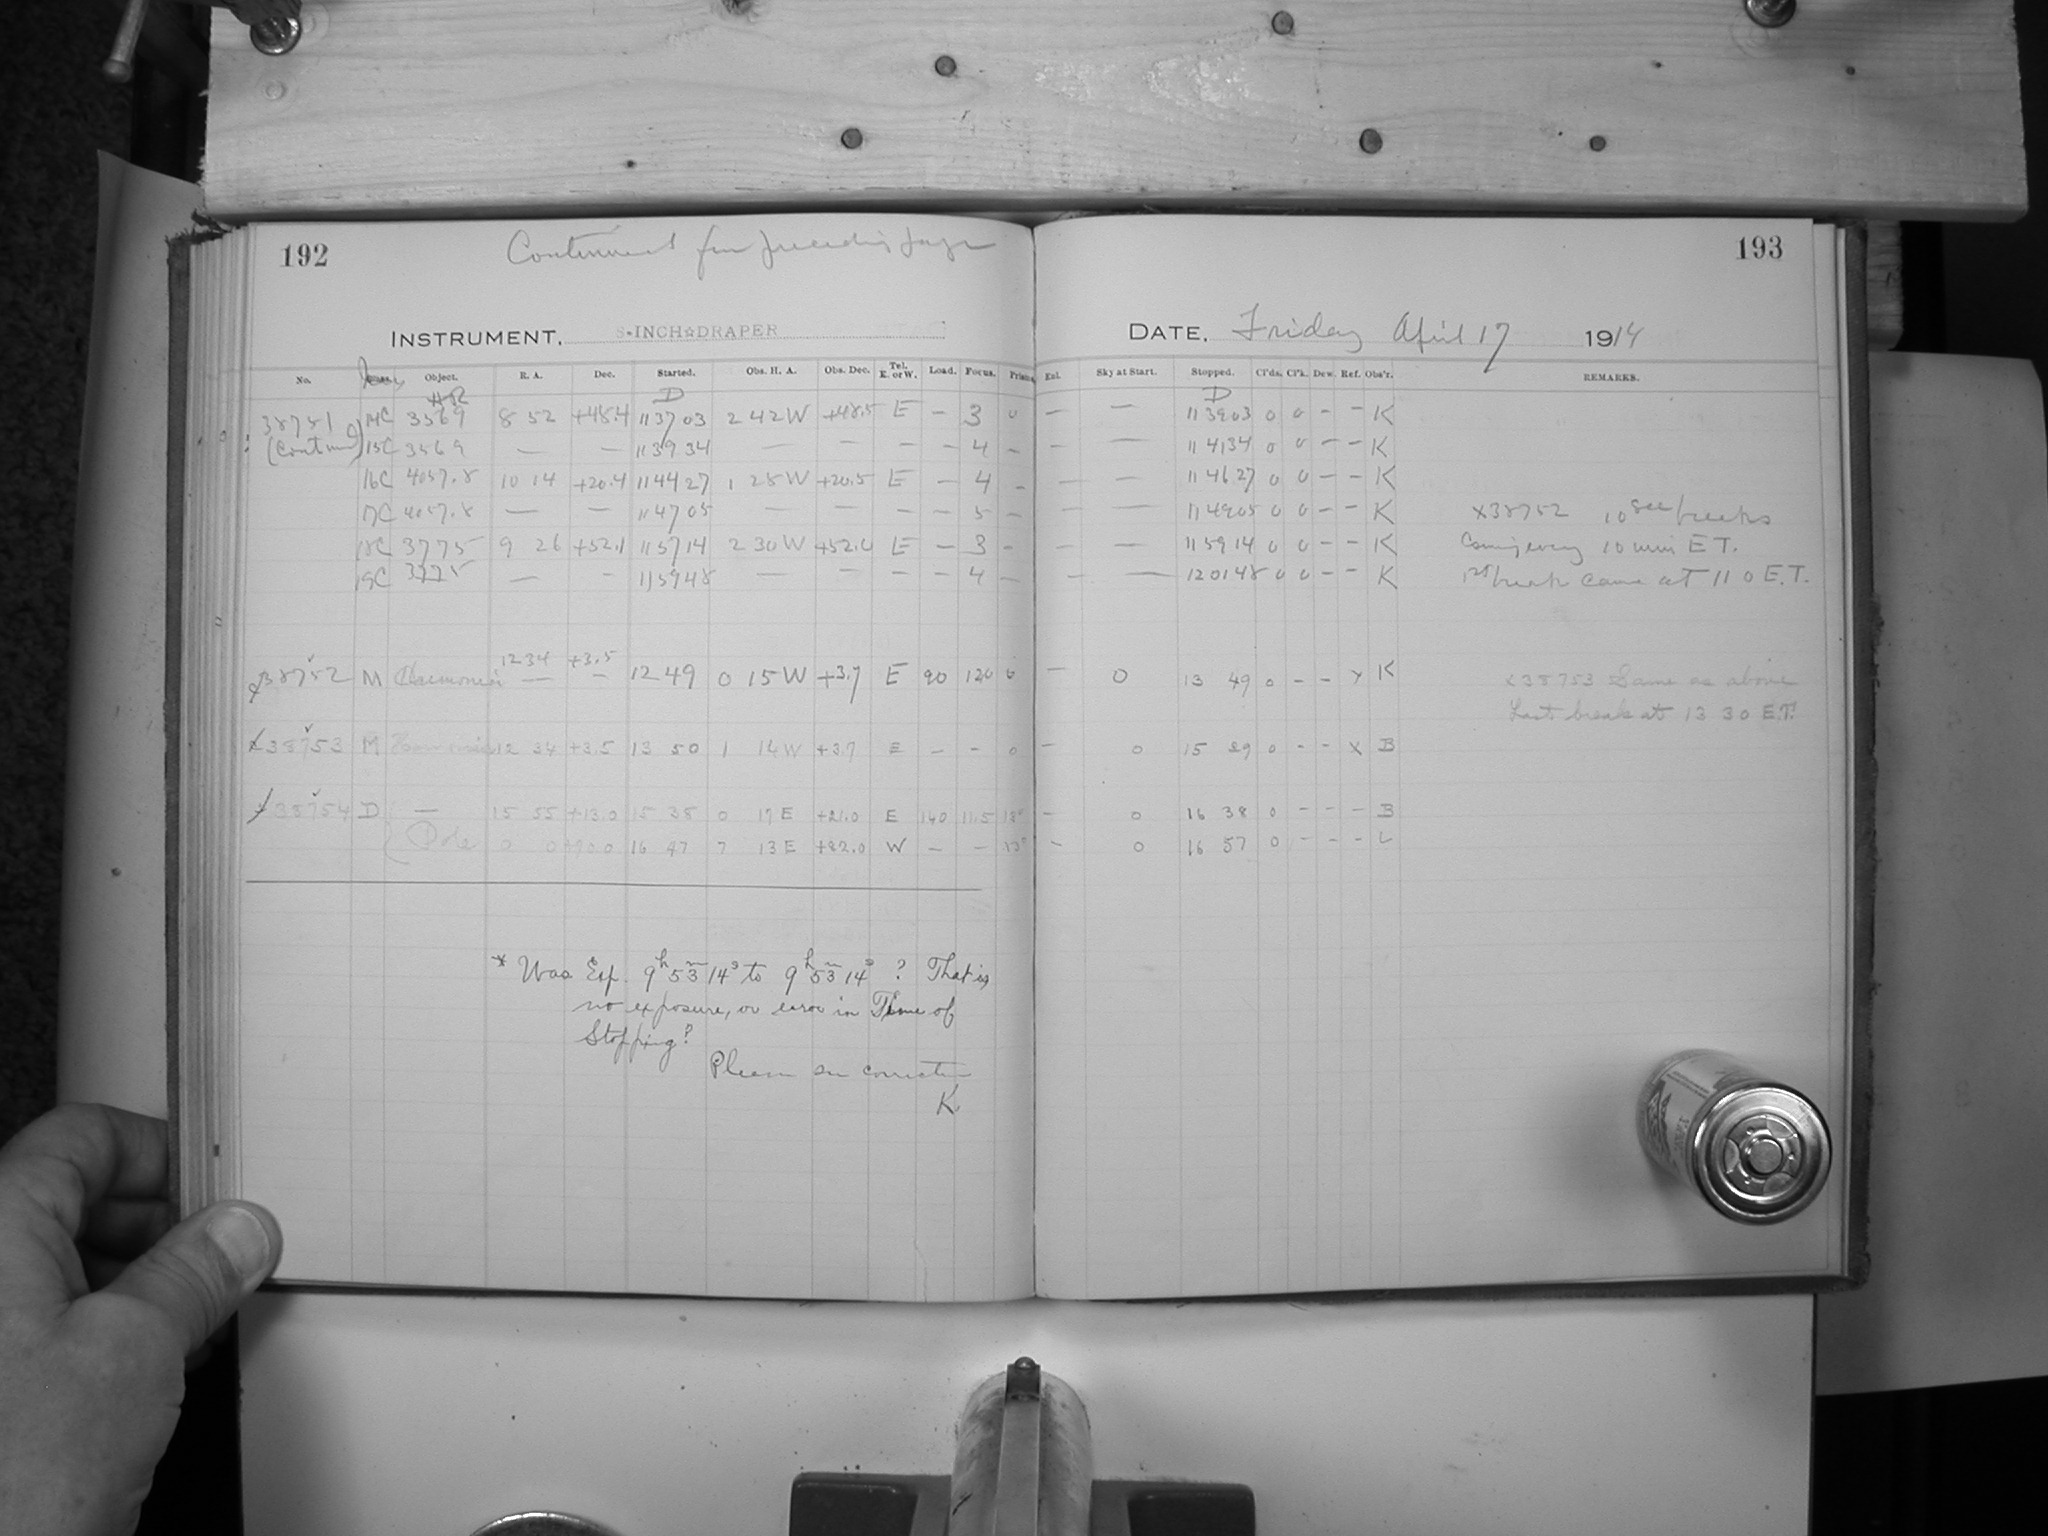 192
193
Continued from preceding page
INSTRUMENT. 8-INCH☆DRAPER
DATE. Friday April 17 1914
No. Class. Object. R. A. Dec. Started. Obs. H. A. Obs. Dec. Tel. E. or W. Load. Focus. Prisms. Exl. Sky at Start. Stopped. Cl'ds. Cl'k. Dew. Ref. Obs'r. REMARKS.
D D
38751 14C 3569 8 52 +48.4 11 37 03 2 42 W +48.5 E – 3 0 – – 11 39 03 0 0 – – K
(Continued) 15C 3569 – – 11 39 34 – – – – 4 – – – 11 41 34 0 0 – – K
16C 4057.8 10 14 +20.4 11 44 27 1 28 W +20.5 E – 4 – – – 11 46 27 0 0 – – K
17C 4057.8 – – 11 47 05 – – – – 5 – – – 11 49 05 0 0 – – K x38752 10 sec breaks
18C 3775 9 26 +52.1 11 57 14 2 30 W +52.0 E – 3 – – – 11 59 14 0 0 – – K coming every 10 min E T.
19C 3775 – – 11 59 48 – – – – 4 – – – 12 01 48 0 0 – – K 1st break came at 11 0 E.T.
12 34 +3.5
x38752 M Haemonia – – 12 49 0 15 W +3.7 E 90 120 0 – 0 13 49 0 – – x K x38753 Same as above
Last break at 13 30 E.T.
x38753 M 12 34 +3.5 13 50 1 14 W +3.7 E – – 0 – 0 15 29 0 – – x B
x38754 D – 15 55 +13.0 15 38 0 17 E +21.0 E 140 11.5 – 0 16 38 0 – – – B
Pole 0 0 +90.0 16 47 7 13 E +82.0 W – – – 0 16 57 0 – – – L
* Was Exp. 9h 53m 14s to 9h 53m 14s ? That is,
no exposure, or error in Time of
Stopping?
Please see correction
K.